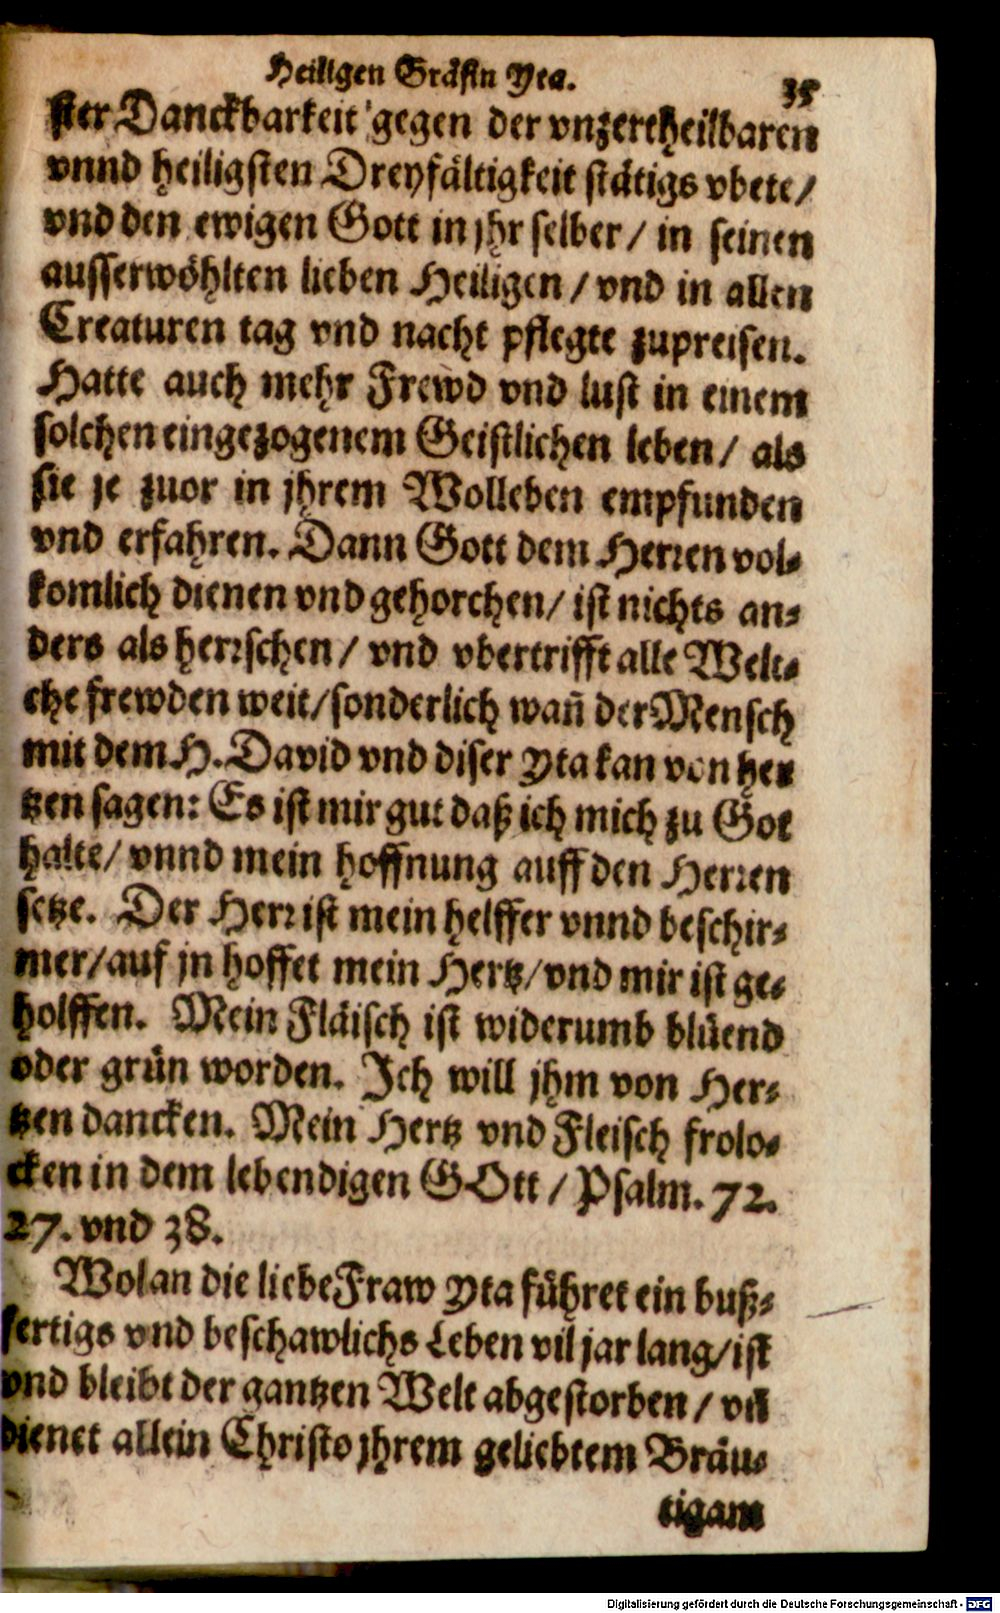 Heiligen Gräfin Yta.
35
ster Danckbarkeit gegen der vnzertheilbaren
vnnd heiligsten Dreyfältigkeit stätigs vbete/
vnd den ewigen Gott in jhr selber / in seinen
ausserwöhlten lieben Heiligen / vnd in allen
Creaturen tag vnd nacht pflegte zupreisen.
Hatte auch mehr Frewd vnd lust in einem
solchen eingezogenem Geistlichen leben / als
sie je zuor in jhrem Wolleben empfunden
vnd erfahren. Dann Gott dem Herren vol-
komlich dienen vnd gehorchen / ist nichts an-
ders als herrschen / vnd vbertrifft alle Welt-
che frewden weit / sonderlich wañ der Mensch
mit dem H. David vnd diser Yta kan von her
tzen sagen: Es ist mir gut daß ich mich zu Got
halte / vnnd mein hoffnung auff den Herren
setze. Der Herr ist mein helffer vnnd beschir-
mer / auf jn hoffet mein Hertz / vnd mir ist ge-
holffen. Mein Fläisch ist widerumb blüend
oder grün worden. Ich will jhm von Her-
tzen dancken. Mein Hertz vnd Fleisch frolo-
cken in dem lebendigen GOtt / Psalm. 72.
27. vnd 38.
Wolan die liebe Fraw Yta führet ein buß-
fertigs vnd beschawlichs Leben vil jar lang / ist
vnd bleibt der gantzen Welt abgestorben / vñ
dienet allein Christo jhrem geliebtem Bräu-
tigam
Digitalisierung gefördert durch die Deutsche Forschungsgemeinschaft - DFG